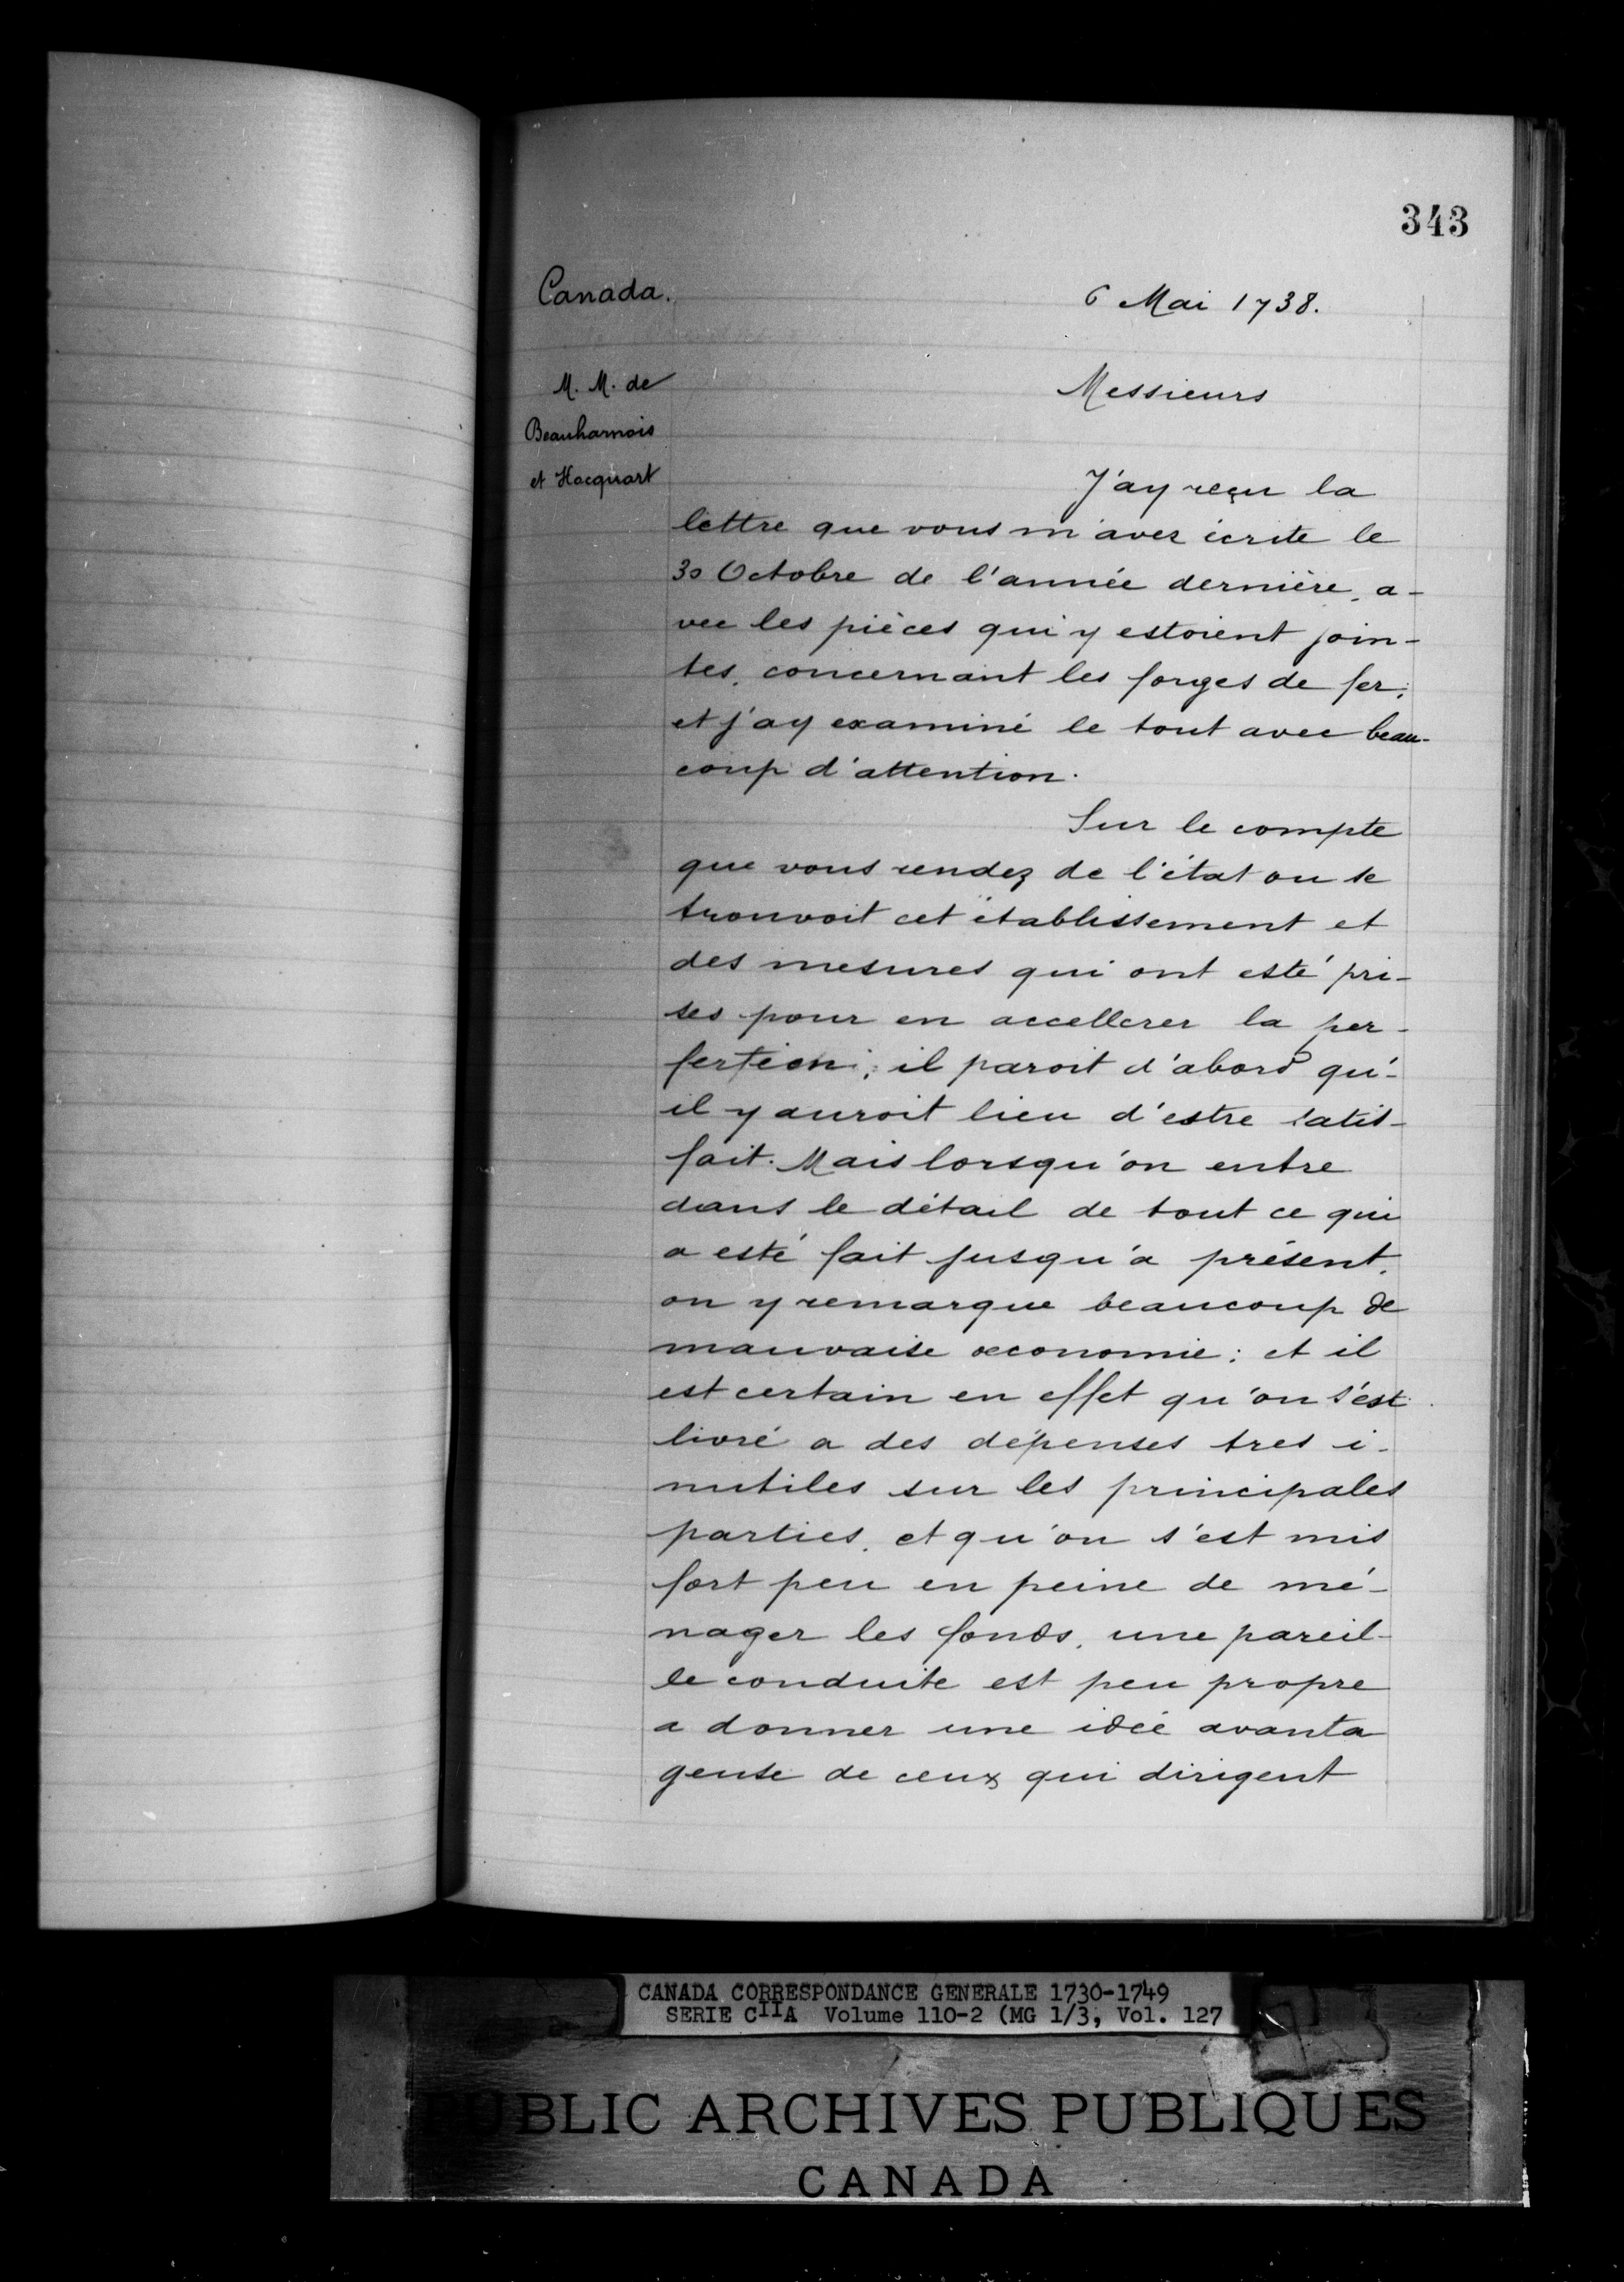 343
Canada.
6 Mai 1738.
M. M. de
Beauharnois
et Hocquart
Messieurs
J'ay reçu la
lettre que vous m'avez écrite le
30 Octobre de l'année dernière, a-
vec les pièces qui y estoient join-
tes, concernant les forges de fer;
et j'ay examiné le tout avec beau-
coup d'attention.
Sur le compte
que vous rendez de l'état ou se
trouvoit cet établissement et
des mesures qui ont esté pri-
ses pour en accellerer la per-
fertion; il paroit d'abord qu'-
il y auroit lieu d'estre satis-
fait. Mais lorsqu'on entre
dans le détail de tout ce qui
a esté fait jusqu'a présent,
on y remarque beaucoup de
mauvaise œconomie; et il
est certain en effet qu'on s'est
livré a des dépenses tres i-
nutiles sur les principales
parties, et qu'on s'est mis
fort peu en peine de mé-
nager les fonds, une pareil-
le conduite est peu propre
a donner une idée avanta
geuse de ceux qui dirigent
CANADA CORRESPONDANCE GENERALE 1730-1749
SERIE CIIA Volume 110-2 (MG 1/3, Vol. 127
PUBLIC ARCHIVES PUBLIQUES
CANADA